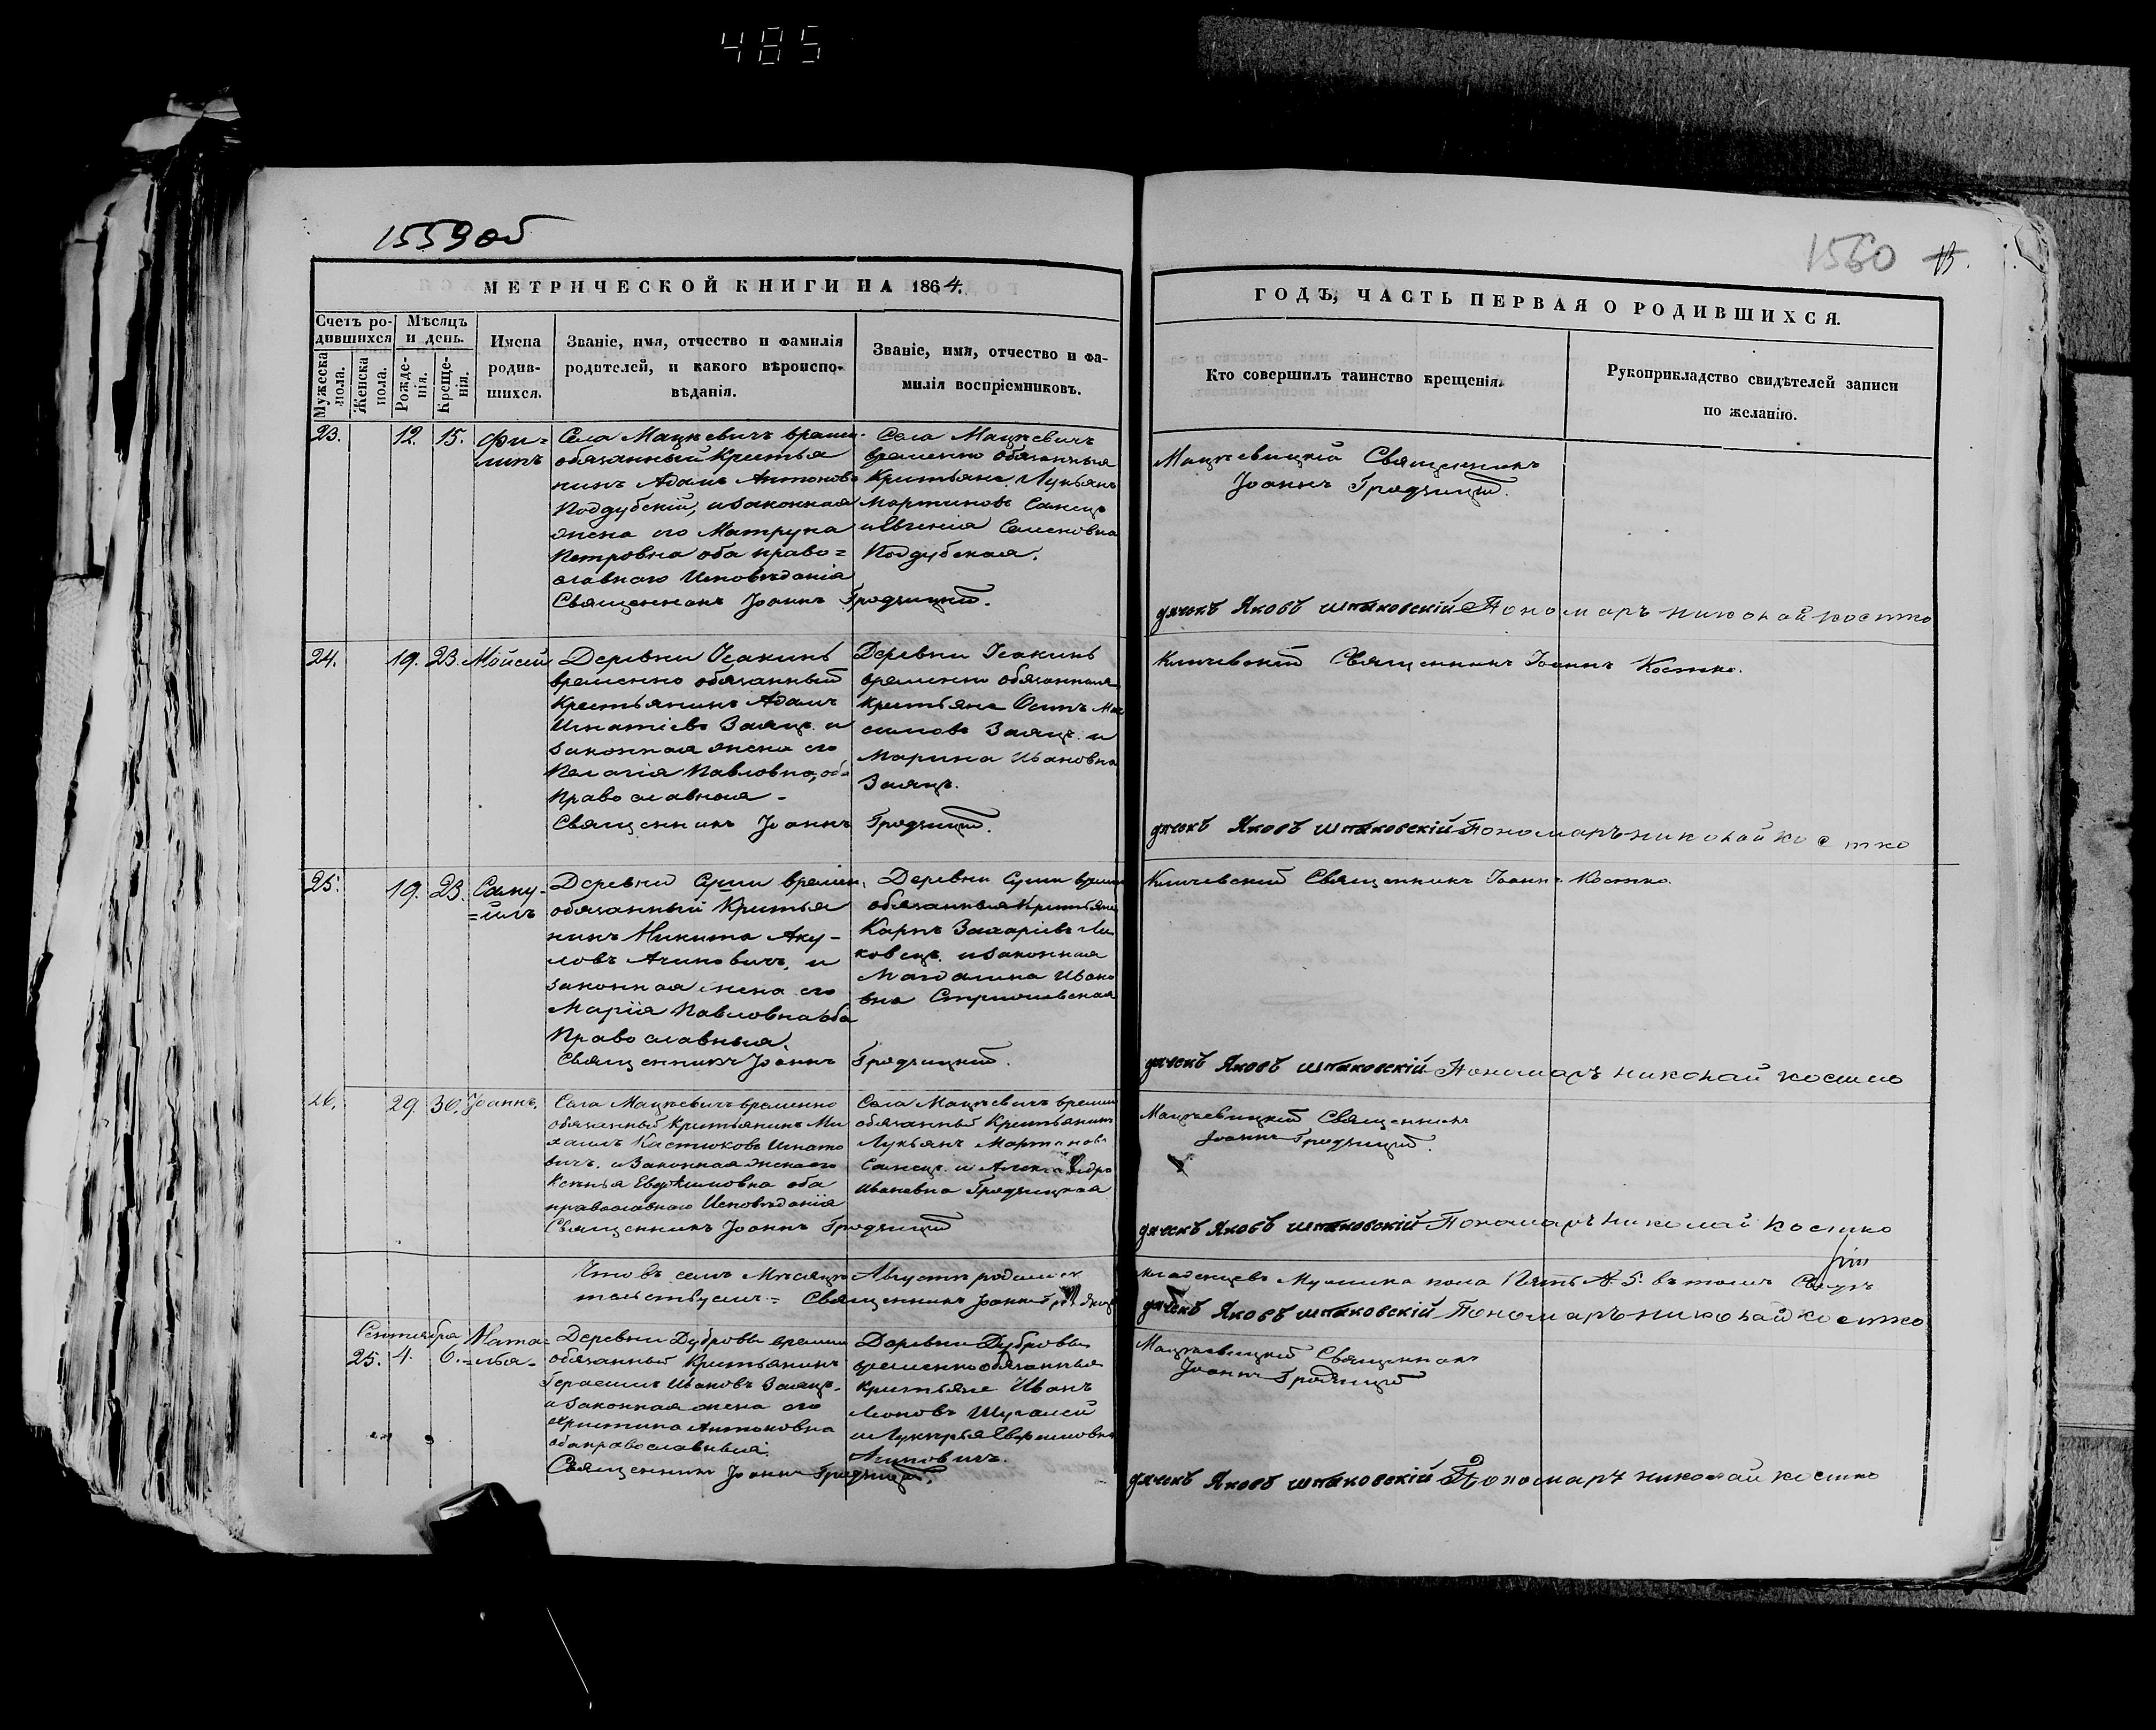 485
1559 об
1560 13.
МЕТРИЧЕСКОЙ КНИГИ НА 1864.
ГОДЪ, ЧАСТЬ ПЕРВАЯ О РОДИВШИХСЯ.
Счетъ ро-
дившихся
Мужеска
пола.
Женска
пола.
Мѣсяцъ
и день.
Рожде-
нія.
Креще-
нія.
Имена
родив-
шихся.
Званіе, имя, отчество и фамилія
родителей, и какого вѣроиспо-
вѣданія.
Званіе, имя, отчество и фа-
милія воспріемниковъ.
Кто совершилъ таинство крещенія.
Рукоприкладство свидѣтелей записи
по желанію.
23. 12. 15. Фи-
липъ
Села Мацкевичъ времен.
обязанный Крестья
нинъ Адамъ Антоновъ
Поддубскій, и законная
жена его Матруна
Петровна оба право=
славнаго Исповѣданія
Священникъ Іоаннъ Гродзицкій.
Села Мацкевичъ
временно обязанныя
Крестьяне Лукьянъ
Мартиновъ Санецъ
и Евгенія Семеновна
Поддубская.
Мацкевицкій Священникъ
Іоаннъ Гродзицкій.
дячекъ Яковъ шпаковскій Пономаръ николай костко
24. 19. 23. Мойсей
Деревни Осакинъ
временно обязанный
Крестьянинъ Адамъ
Игнатіевъ Заяцъ и
законная жена его
Пелагія Павловна, оба
Православныя -
Священникъ Іоаннъ Гродзицкій.
Деревни Осакинъ
временно обязанныя
Крестьяне Осипъ Мак
симовъ Заяцъ и
Марина Ивановна
Заяцъ.
Кличевскій Священникъ Іоаннъ Костко.
дячекъ Яковъ шпаковскій Пономаръ николай костко
25. 19. 23. Саму-
=илъ
Деревни Суши времен.
обязанный Крестья
нинъ Никита Аку-
ловъ Ачиновичъ, и
законная жена его
Марія Павловна оба
Православныя.
Священникъ Іоаннъ Гродзицкій.
Деревни Суши времен
обязанныя Крестьяне
Карпъ Захаріевъ Ли
ковецъ и законная
Магдалина Ивано
вна
Кличевскій Священникъ Іоаннъ Костко.
дячекъ Яковъ шпаковскій Пономаръ николай костко
26. 29. 30. Іоаннъ.
Села Мацкевичъ временно
обязанный Крестьянинъ Ми
хаилъ Костюковъ Игнато
вичъ. и Законная жена его
Ксенья Евфимовна оба
православнаго Исповѣданія
Священникъ Іоаннъ Гродзицкій
Села Мацкевичъ времен
обязанный Крестьянинъ
Лукьянъ Мартиновъ
Санецъ и Александра
Ивановна Гродзицкая
Мацкевицкій Священникъ
Іоаннъ Гродзицкій.
дячекъ Яковъ шпаковскій Пономаръ Николай Костко
Что въ семъ Мѣсяцѣ Августѣ родилося младенцевъ Мужеска пола Пять №. 5. въ томъ
Священникъ Іоаннъ
дячекъ Яковъ шпаковскій Пономаръ николай костко
Сентября
25. 4. 6. Ната-
=лья-
Деревни Дубровы времен
обязанный Крестьянинъ
Герасимъ Ивановъ Заяцъ.
и Законная жена его
Христина Антоновна
оба православныя.
Священникъ Іоаннъ Гродзицкій.
Деревни Дубровы
временно обязанныя
Крестьяне Иванъ
Леоновъ Шугалей
и Лукерья Ефремовна
Ачиновичъ.
Мацкевицкій Священникъ
Іоаннъ Гродзицкій
дячекъ Яковъ шпаковскій Пономаръ николай костко